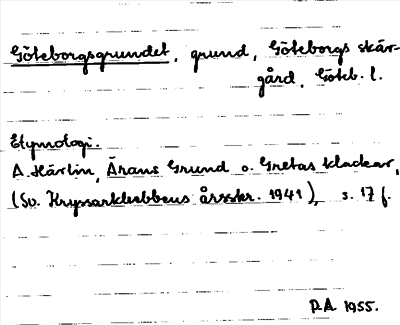 Göteborgsgrundet, grund, Göteborgs skär-
gård, Göteb. l.
Etymologi.
A. Härlin, Ärans Grund o. Gretas klackar,
(Sv. Kryssarklubbens årsskr. 1941), s. 17 f.
P.A. 1955.